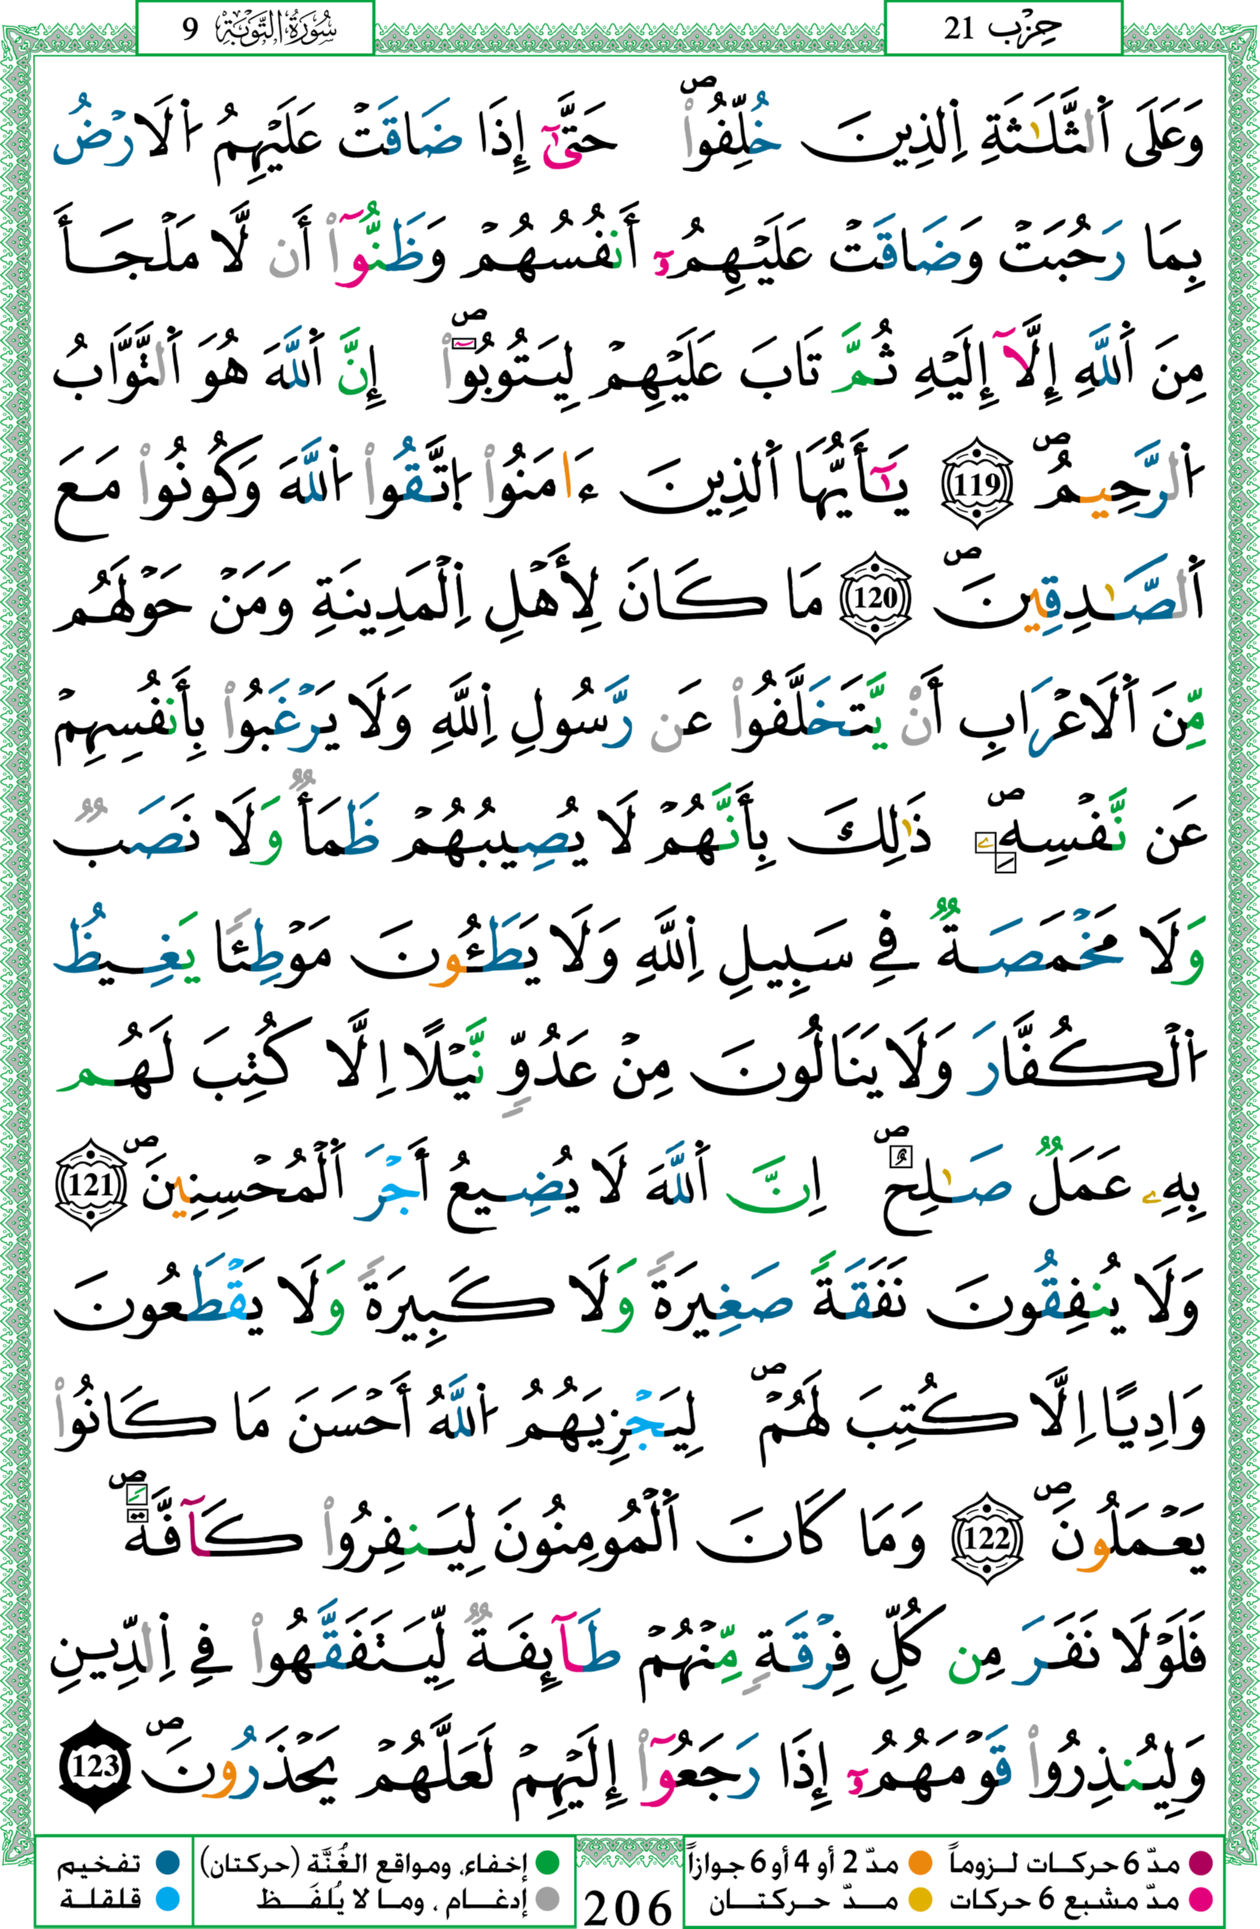 حِزْب 21
سُورَةُ التَّوْبَة 9
وَعَلَى اَ۬لثَّلَٰثَةِ اِ۬لذِينَ خُلِّفُواْۖ حَتَّىٰٓ إِذَا ضَاقَتْ عَلَيْهِمُ اُ۬لَارْضُ
بِمَا رَحُبَتْ وَضَاقَتْ عَلَيْهِمُۥٓ أَنفُسُهُمْ وَظَنُّوٓاْ أَن لَّا مَلْجَأَ
مِنَ اَ۬للَّهِ إِلَّآ إِلَيْهِ ثُمَّ تَابَ عَلَيْهِمْ لِيَتُوبُوٓاْۖ إِنَّ اَ۬للَّهَ هُوَ اَ۬لتَّوَّابُ
اُ۬لرَّحِيمُۖ 119 يَٰٓأَيُّهَا اَ۬لذِينَ ءَامَنُواْ اُ۪تَّقُواْ اُ۬للَّهَ وَكُونُواْ مَعَ
اَ۬لصَّٰدِقِينَۖ 120 مَا كَانَ لِأَهْلِ اِ۬لْمَدِينَةِ وَمَنْ حَوْلَهُم
مِّنَ اَ۬لَاعْرَابِ أَنْ يَّتَخَلَّفُواْ عَن رَّسُولِ اِ۬للَّهِ وَلَا يَرْغَبُواْ بِأَنفُسِهِمْ
عَن نَّفْسِهِۦۖ ذَٰلِكَ بِأَنَّهُمْ لَا يُصِيبُهُمْ ظَمَأٞ وَلَا نَصَبٞ
وَلَا مَخْمَصَةٞ فِے سَبِيلِ اِ۬للَّهِ وَلَا يَطَـُٔونَ مَوْطِئاٗ يَغِيظُ
اُ۬لْكُفَّارَ وَلَا يَنَالُونَ مِنْ عَدُوّٖ نَّيْلًا اِلَّا كُتِبَ لَهُم
بِهِۦ عَمَلٞ صَٰلِحٌۖ اِنَّ اَ۬للَّهَ لَا يُضِيعُ أَجْرَ اَ۬لْمُحْسِنِينَۖ 121
وَلَا يُنفِقُونَ نَفَقَةٗ صَغِيرَةٗ وَلَا كَبِيرَةٗ وَلَا يَقْطَعُونَ
وَادِيًا اِلَّا كُتِبَ لَهُمْۖ لِيَجْزِيَهُمُ اُ۬للَّهُ أَحْسَنَ مَا كَانُواْ
يَعْمَلُونَۖ 122 وَمَا كَانَ اَ۬لْمُومِنُونَ لِيَنفِرُواْ كَآفَّةٗۖ
فَلَوْلَا نَفَرَ مِن كُلِّ فِرْقَةٖ مِّنْهُمْ طَآئِفَةٞ لِّيَتَفَقَّهُواْ فِے اِ۬لدِّينِ
وَلِيُنذِرُواْ قَوْمَهُمُۥٓ إِذَا رَجَعُوٓاْ إِلَيْهِمْ لَعَلَّهُمْ يَحْذَرُونَۖ 123
مدّ 6 حركات لـزوماً
مدّ 2 أو 4 أو 6 جوازاً
مدّ مشبع 6 حركات
مـــدّ حــركتــان
206
إخفاء، ومواقع الغُنَّة (حركتان)
إدغـــام ، ومـا لا يُلفَـــظ
تفخيم
قلقلة